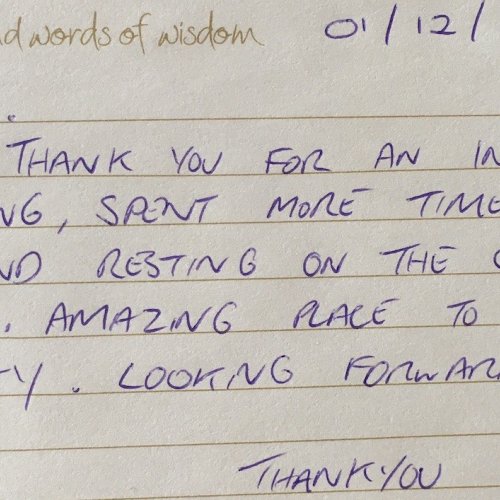 nd words of wisdom 01/12/
THANK YOU FOR AN IN
NG, SPENT MORE TIME
ND RESTING ON THE C
. AMAZING PLACE TO
TY. LOOKING FORWAR
THANKYOU